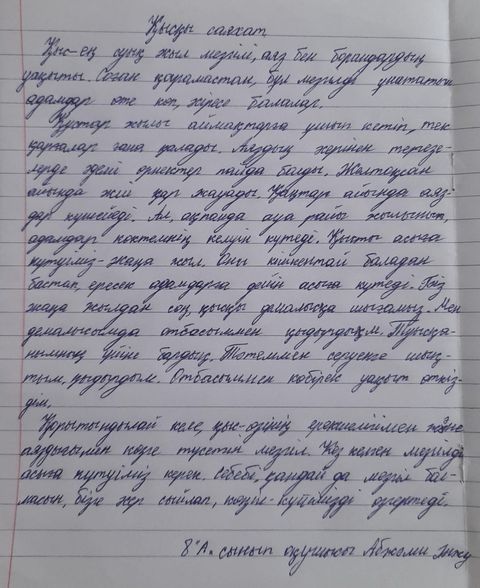 Қысқы саяхат
Қыс-ең суық жыл мезгілі, аяз бен борандардың
уақыты. Соған қарамастан, бұл мезгілді ұнататын
адамдар өте көп, әсіресе балалар.
Құстар жылы аймақтарға ұшып кетіп, тек
қарғалар ғана қалады. Аяздың әсерінен терезе-
лерде әдемі өрнектер пайда болды. Желтоқсан
айында жиі қар жауады. Қаңтар айында аяз-
дар күшейеді. Ал, ақпанда ауа райы жылынып,
адамдар көктемнің келуін күтеді. Қысты асыға
күтуіміз-жаңа жыл. Оны кішкентай баладан
бастап, ересек адамдарға дейін асыға күтеді. Біз
жаңа жылдан соң, қысқы демалысқа шығамыз. Мен
демалысымда отбасыммен қыдырдым. Туысқа-
нымның үйіне бардық. Тәтеммен серуенге шық-
тым, қыдырдым. Отбасыммен көбірек уақыт өткіз-
дім.
Қорытындылай келе, қыс-өзінің ерекшелігімен және
аяздығымен көзге түсетін мезгіл. Кез келген мезгілді
асыға күтуіміз керек. Себебі, қандай да мезгіл бол-
масын, бізге әсер сыйлап, көңіл-күйімізді өзгертеді.
8 "А" сынып оқушысы Абжами